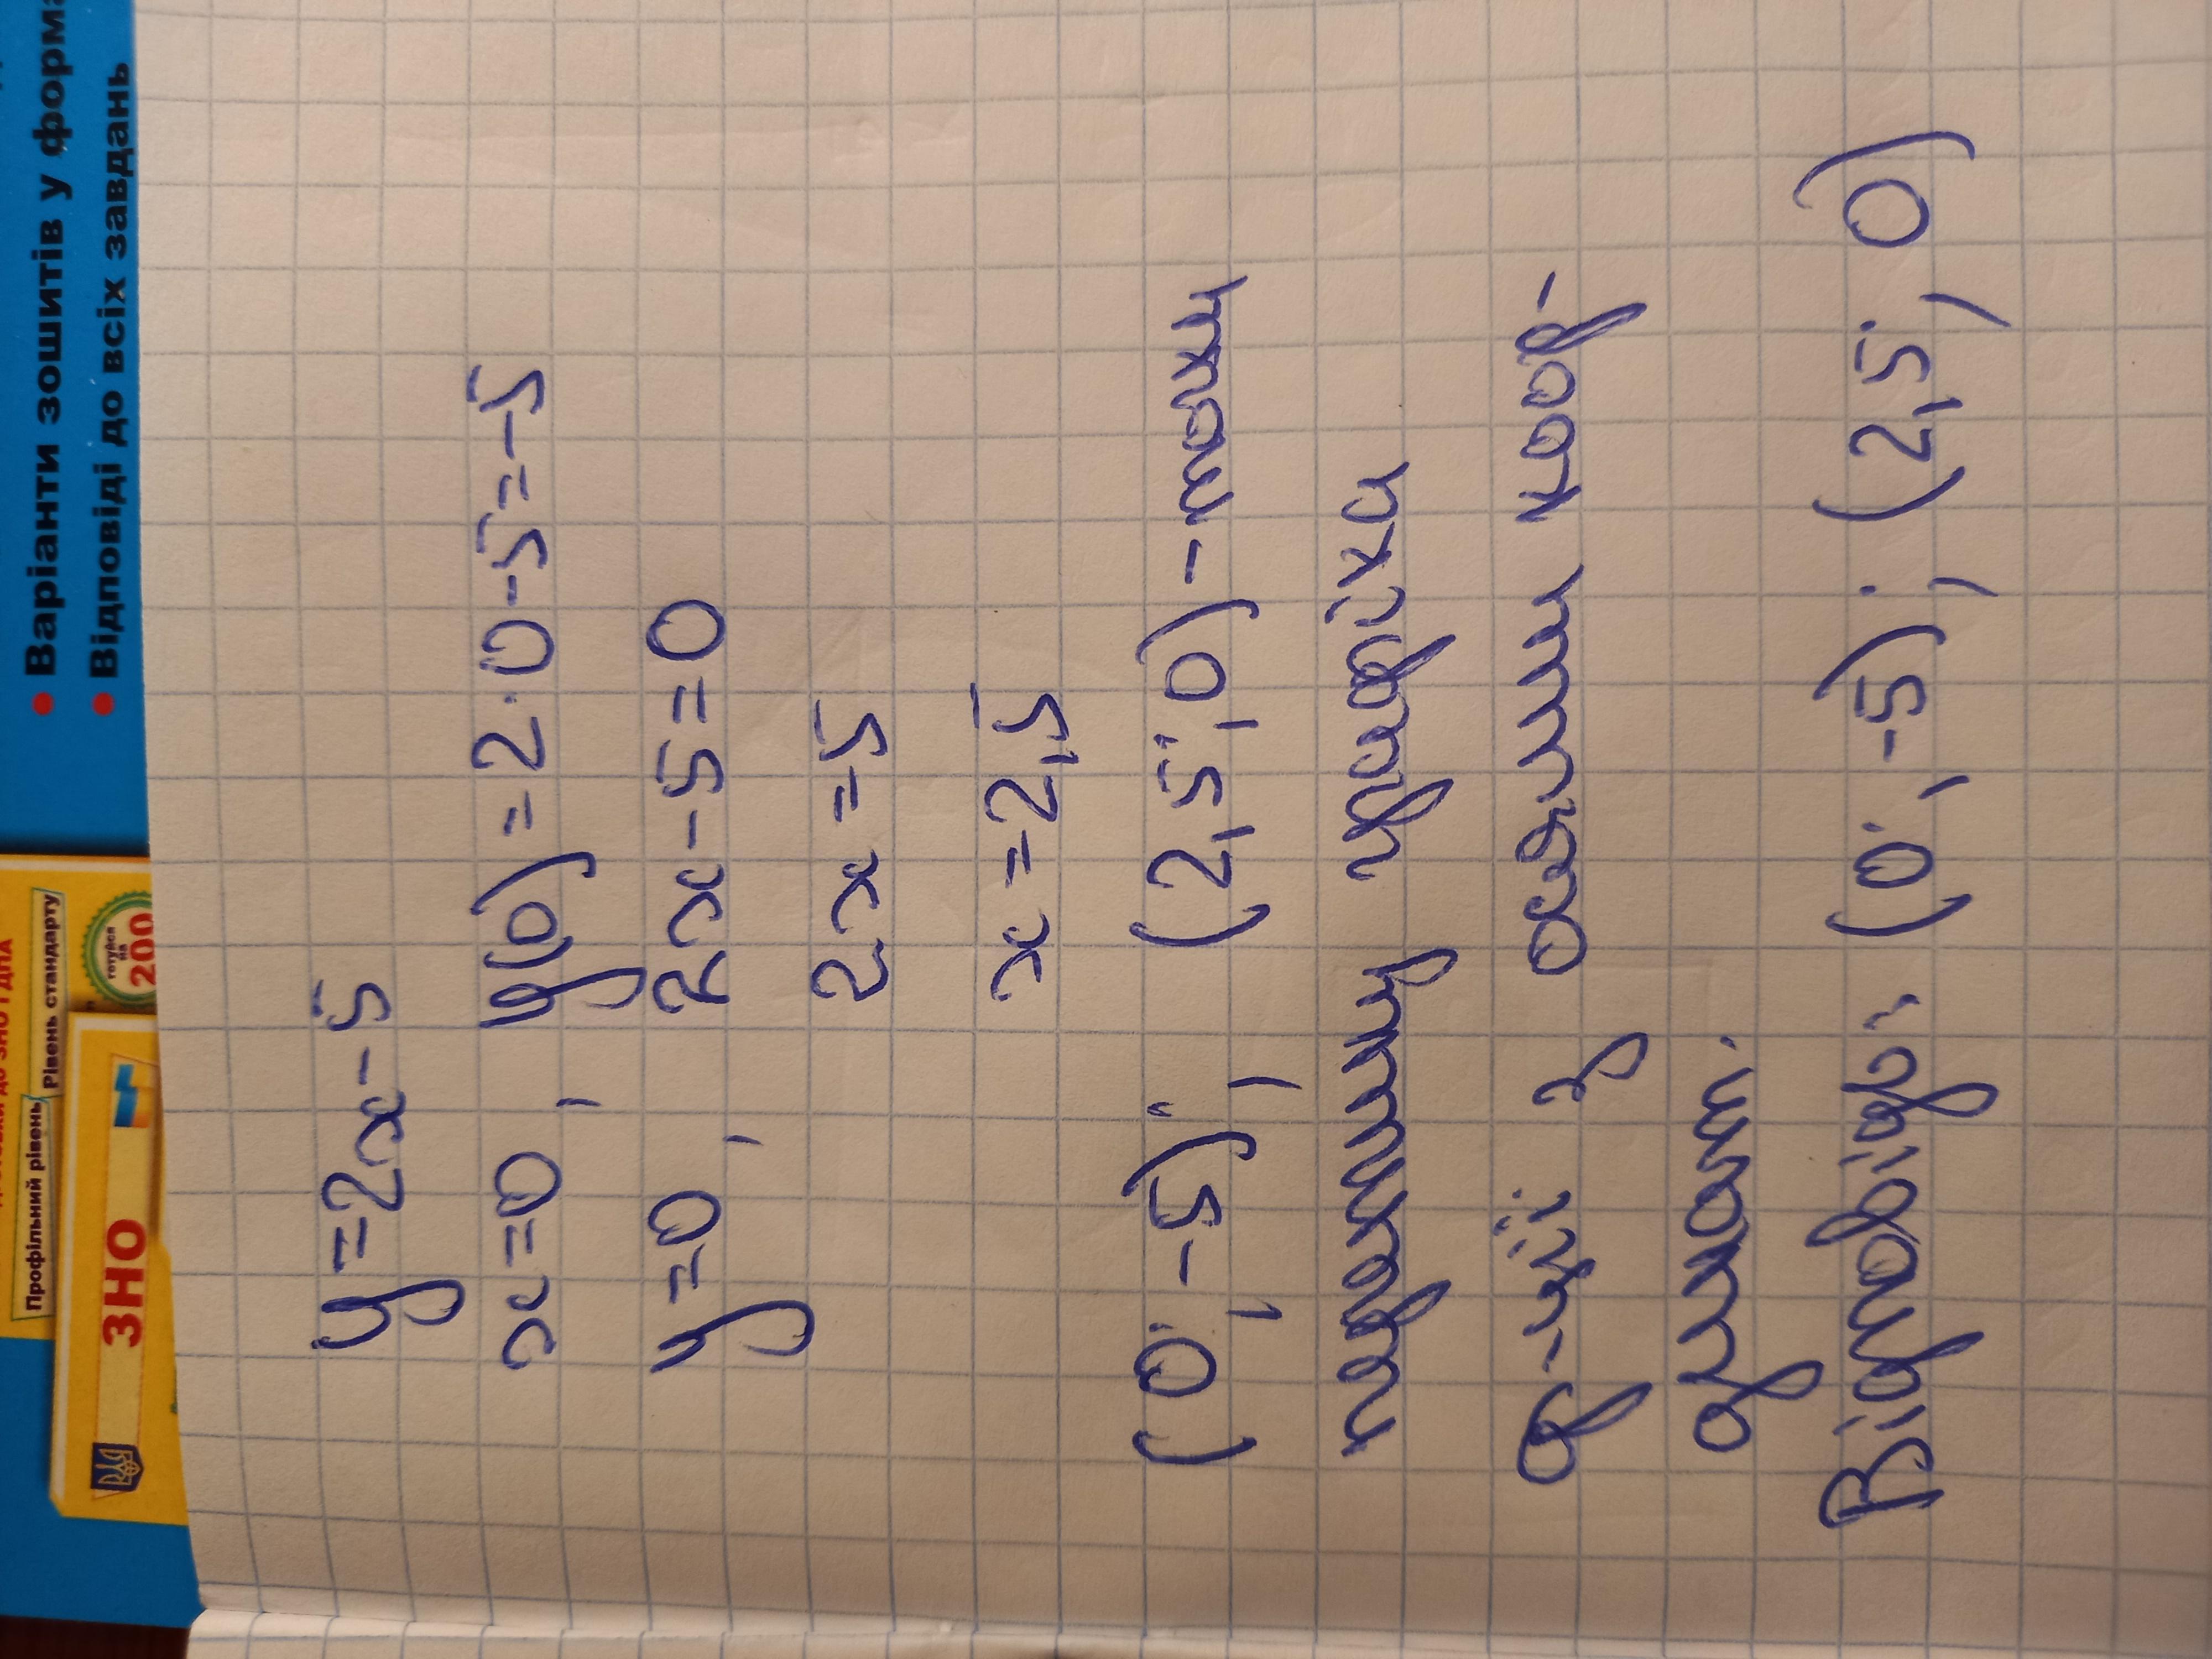 Варіанти зошитів у форма
Відповіді до всіх завдань
Профільний рівень
Рівень стандарту
готуйся
на
200
ЗНО
y=2x-5
x=0, y(0)=2·0-5=-5
y=0, 2x-5=0
2x=5
x=2,5
(0;-5); (2,5;0)-точки
перетину графіка
ф-ції з осями коор-
динат.
Відповідь: (0;-5); (2,5; 0)